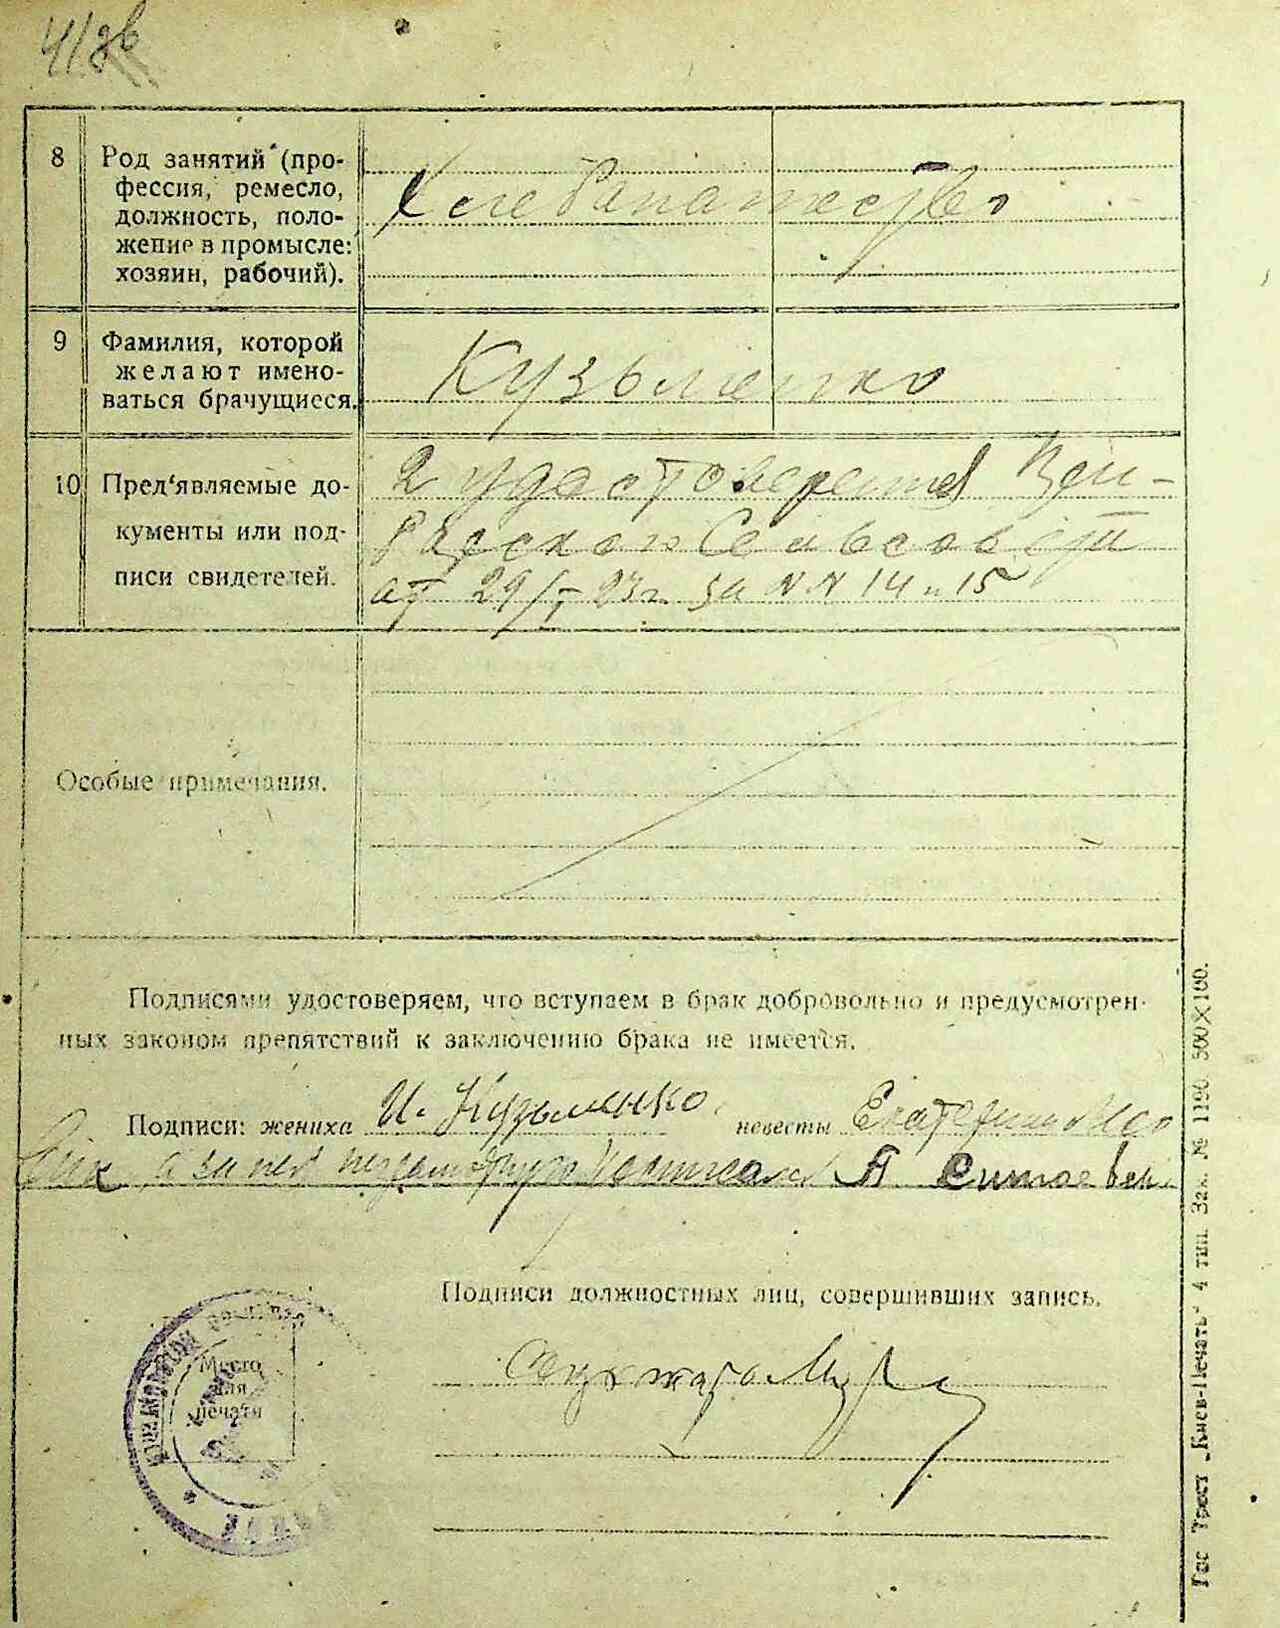 8 Род занятий (про-
фессия, ремесло,
должность, поло-
жение в промысле:
хозяин, рабочий).
9 Фамилия, которой
желают имено-
ваться брачущиеся.
Кузьменко
10 Пред'являемые до-
кументы или под-
писи свидетелей.
2 удостоверения
Сельсовета
от 29/I 23 г. за N N 14 и 15
Особые примечания.
Подписями удостоверяем, что вступаем в брак добровольно и предусмотрен-
ных законом препятствий к заключению брака не имеется.
Подписи: жениха И. Кузьменко невесты Екатерина
а за неё расписался А.
Подписи должностных лиц, совершивших запись.
Место
для
печати
Гос Трест „Киев-Печать" 4 тип. Зак. № 1190 500X100.